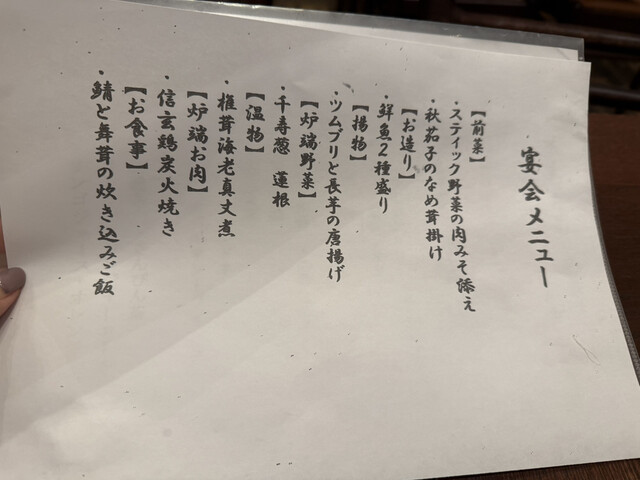 宴会メニュー
【前菜】
・スティック野菜の肉みそ添え
・秋茄子のなめ茸掛け
【お造り】
・鮮魚2種盛り
【揚物】
・ツムブリと長芋の唐揚げ
【炉端野菜】
・千寿葱 蓮根
【温物】
・椎茸海老真丈煮
【炉端お肉】
・信玄鶏炭火焼き
【お食事】
・鯖と舞茸の炊き込みご飯